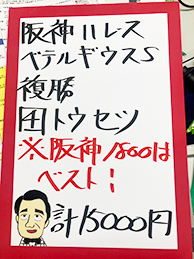 阪神11レス
ベテルギウスS
複勝
田トウセツ
※阪神1800は
ベスト!
計15000円